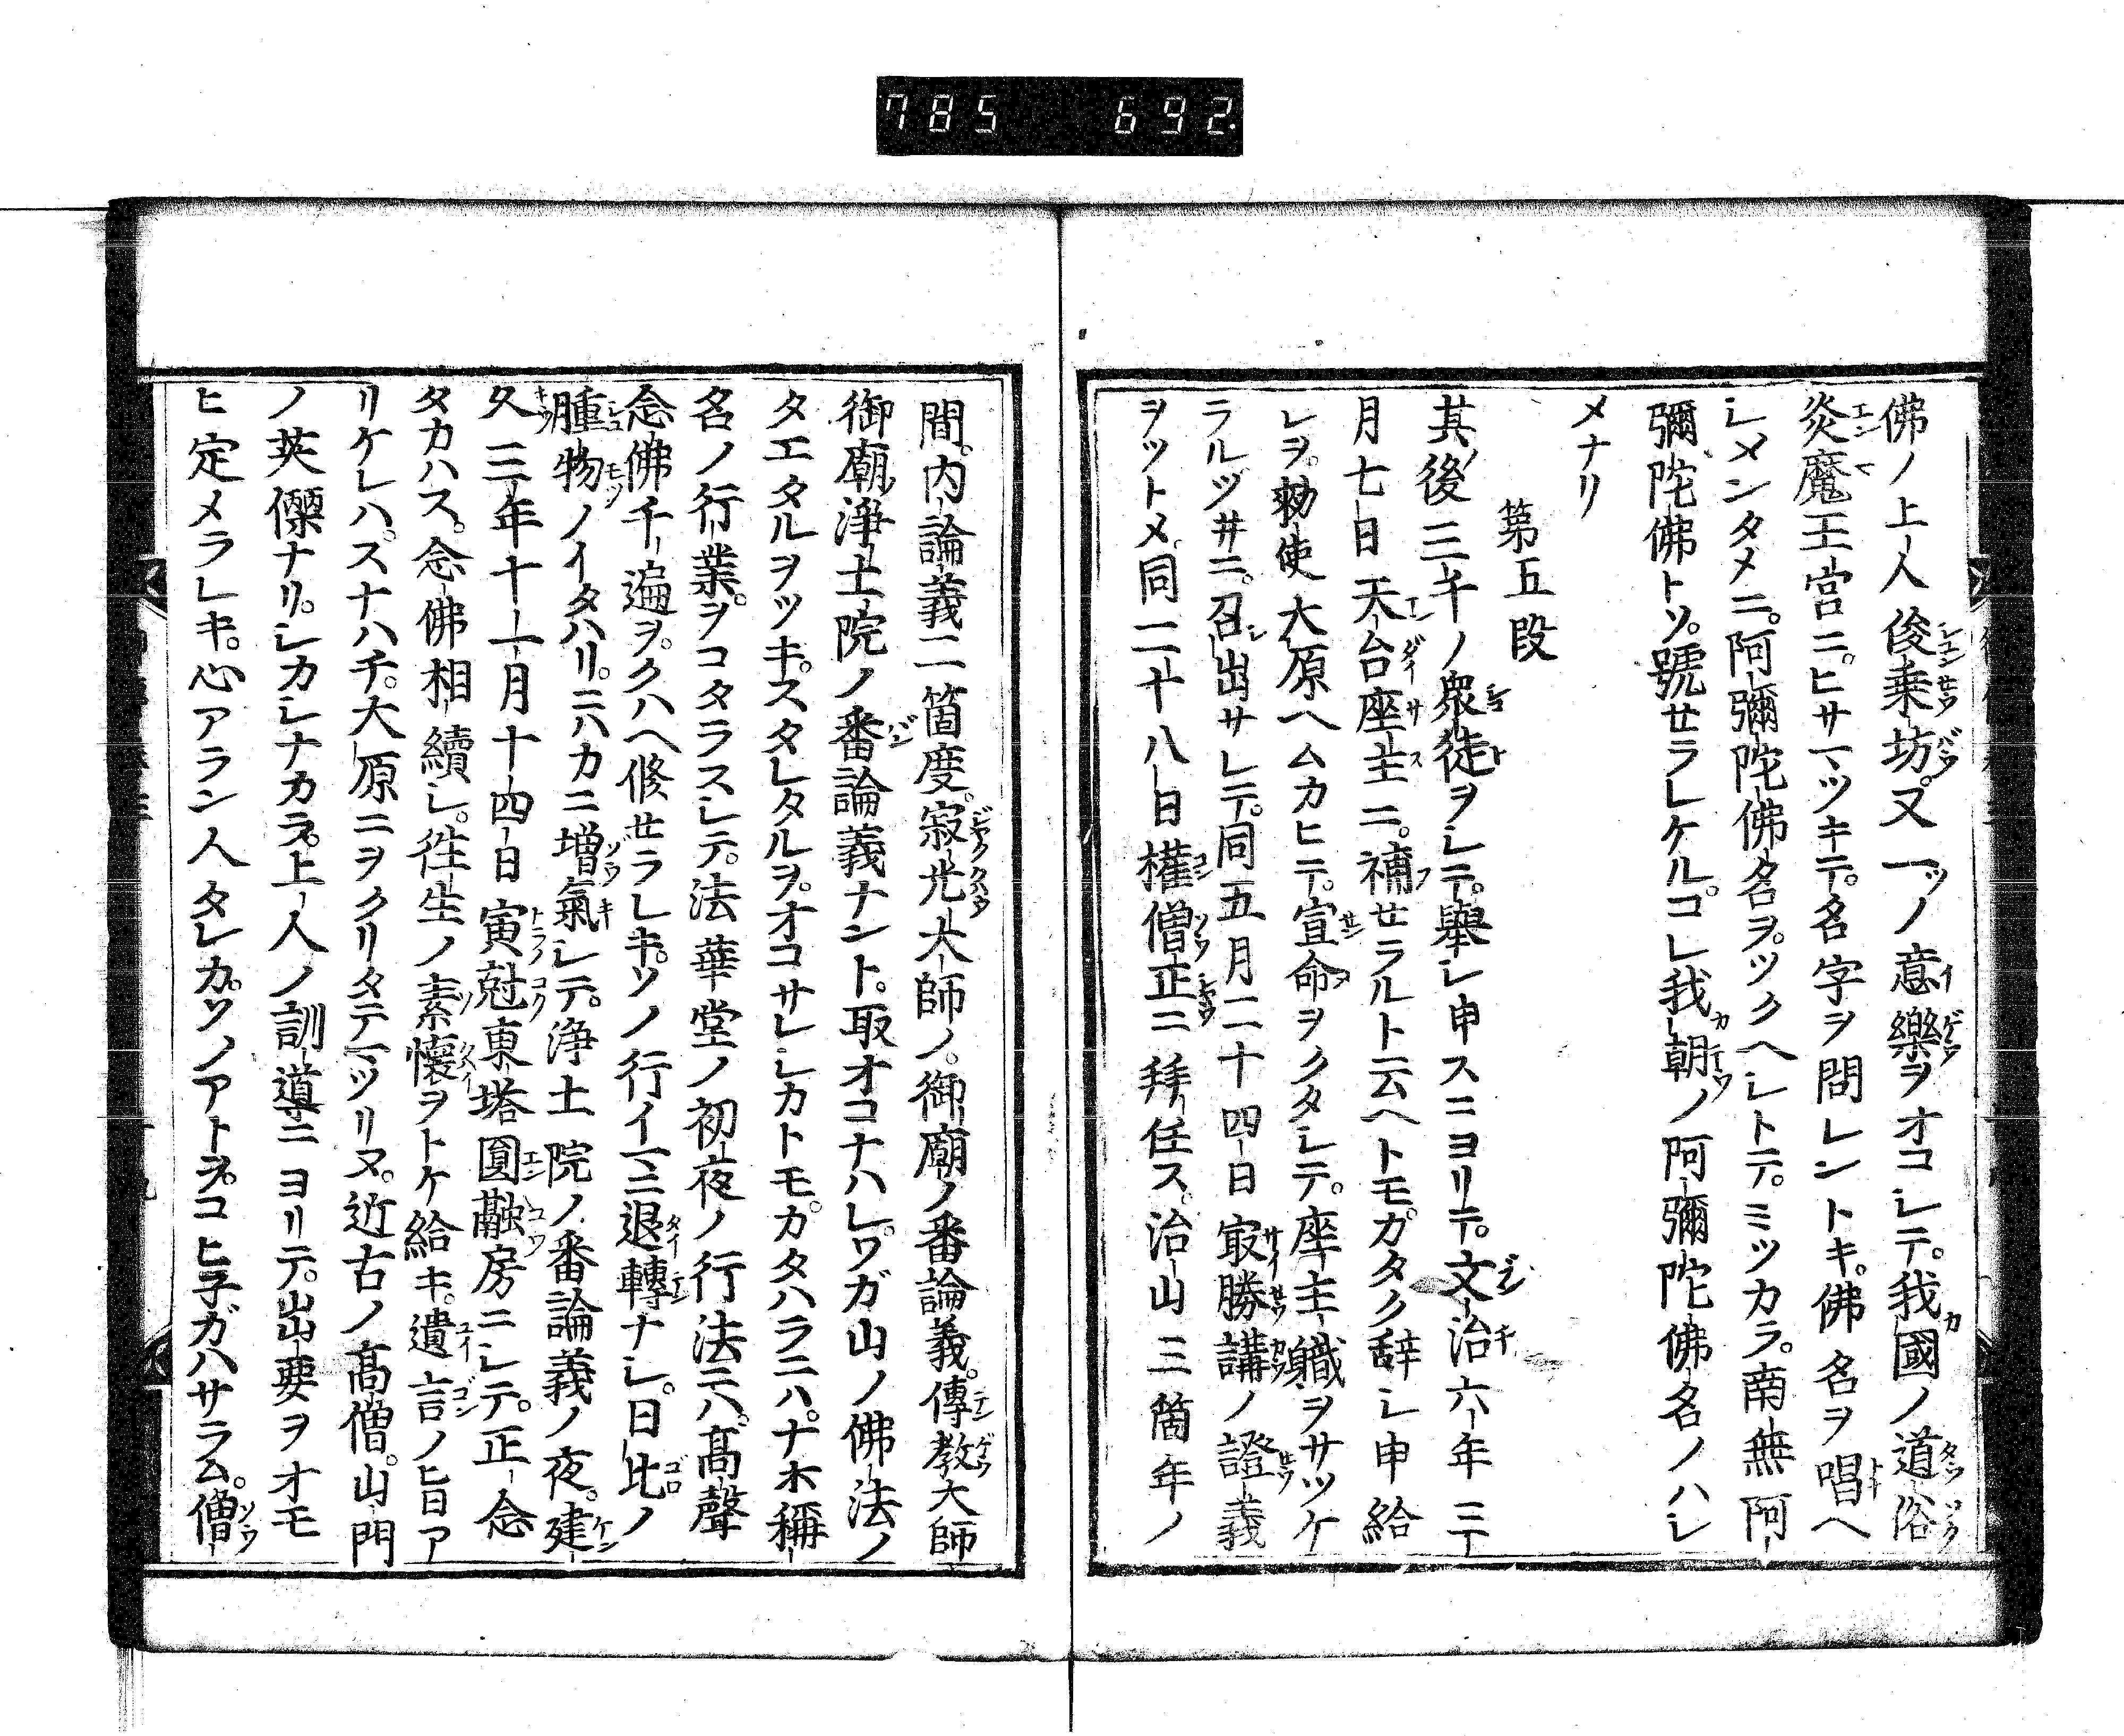 785 692
佛ノ上人俊乗坊。又一ツノ意樂ヲオコシテ。我國ノ道俗
炎魔王宮ニ。ヒサマツキテ。名字ヲ問レントキ。佛名ヲ唱ヘ
シメンタメニ。阿彌陀佛名ヲ。ツクヘシトテ。ミツカラ。南無阿
彌陀佛トソ。號セラレケル。コレ我朝ノ阿彌陀佛名ノハシ
メナリ
第五段
其後三千ノ衆徒ヲシテ。擧シ申スニヨリテ。文治六年三
月七日天台座主ニ。補セラルト云ヘトモ。カタク辞シ申給
シヲ。勅使大原ヘムカヒテ。宣命ヲクタシテ。座主職ヲサツケ
ラル。ツ井ニ。召出サレテ。同五月二十四日最勝講ノ證義
ヲツトメ。同二十八日權僧正ニ拜任ス。治山三箇年ノ
間。内論義二箇度。寂光大師ノ。御廟ノ番論義。傳教大師
御廟淨土院ノ番論義ナント。取オコナハレ。ワガ山ノ佛法ノ
タエタルヲツキ。スタレタルヲ。オコサレシカトモ。カタハラニハ。ナホ稱
名ノ行業。ヲコタラスシテ。法華堂ノ初夜ノ行法ニハ。髙聲
念佛千遍ヲ。クハヘ修セラレキ。ソノ行イマニ退轉ナシ。日比ノ
腫物ノイタハリ。ニハカニ増氣シテ。淨土院ノ番論義ノ夜。建
久三年十一月十四日寅尅東塔圓融房ニシテ。正念
タカハス。念佛相續シ。徃生ノ素懷ヲトケ給キ。遺言ノ旨ア
リケレハ。スナハチ。大原ニヲクリタテマツリヌ。近古ノ髙僧。山門
ノ英傑ナリ。シカシナカラ。上人ノ訓導ニヨリテ。出要ヲオモ
ヒ定メラレキ。心アラン人タレカ。ソノアトヲ。コヒ子ガハサラム。僧